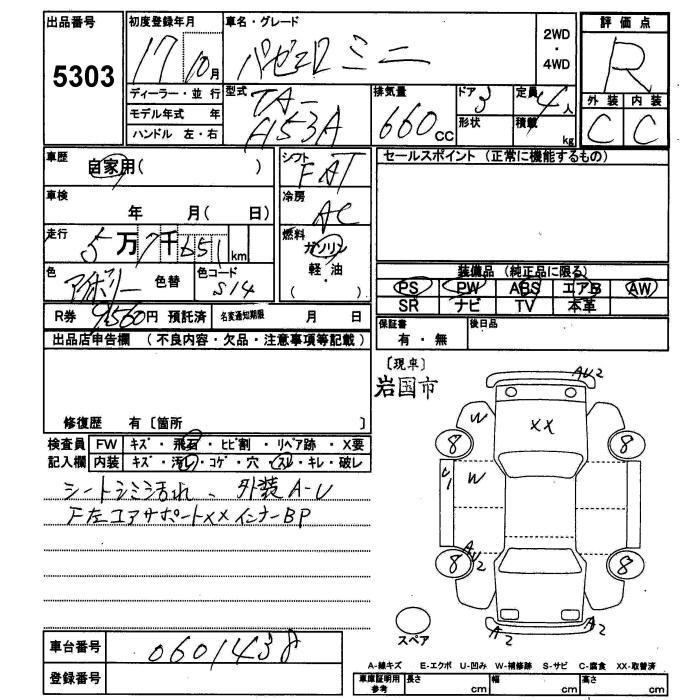 出品番号 初度登録年月 車名・グレード 評価点
5303 17 10月 パゼロミニ 2WD・4WD R
ディーラー・並行 型式 TA-H53A 排気量 660cc ドア 3 定員 4人 外装 内装
モデル年式 年 形状 積載 kg C C
ハンドル 左・右
車歴 自家用( ) シフト FAT セールスポイント(正常に機能するもの)
車検 年 月( 日) 冷房 AC
走行 5万7千651km 燃料 ガソリン・軽油・( )
色 アイボリー 色替 色コード S14 装備品(純正品に限る)
PS PW ABS エアB AW
SR ナビ TV 本革
R券 9560円 預託済 名変通知期限 月 日 保証書 有・無 後日品
出品店申告欄(不良内容・欠品・注意事項等記載) [現車]
岩国市
修復歴 有[箇所 ]
検査員記入欄 FW キズ・飛石・ヒビ割・リペア跡・X要
内装 キズ・汚レ・コゲ・穴・スレ・キレ・破レ
シートシミ汚れ、外装A-U
F左コアサポートXXインナーBP
AU2
W XX
8 8
W
AU2
8 8
A2 A2
スペア
車台番号 0601438
登録番号
A-線キズ E-エクボ U-凹み W-補修跡 S-サビ C-腐食 XX-取替済
車庫証明用参考 長さ cm 幅 cm 高さ cm